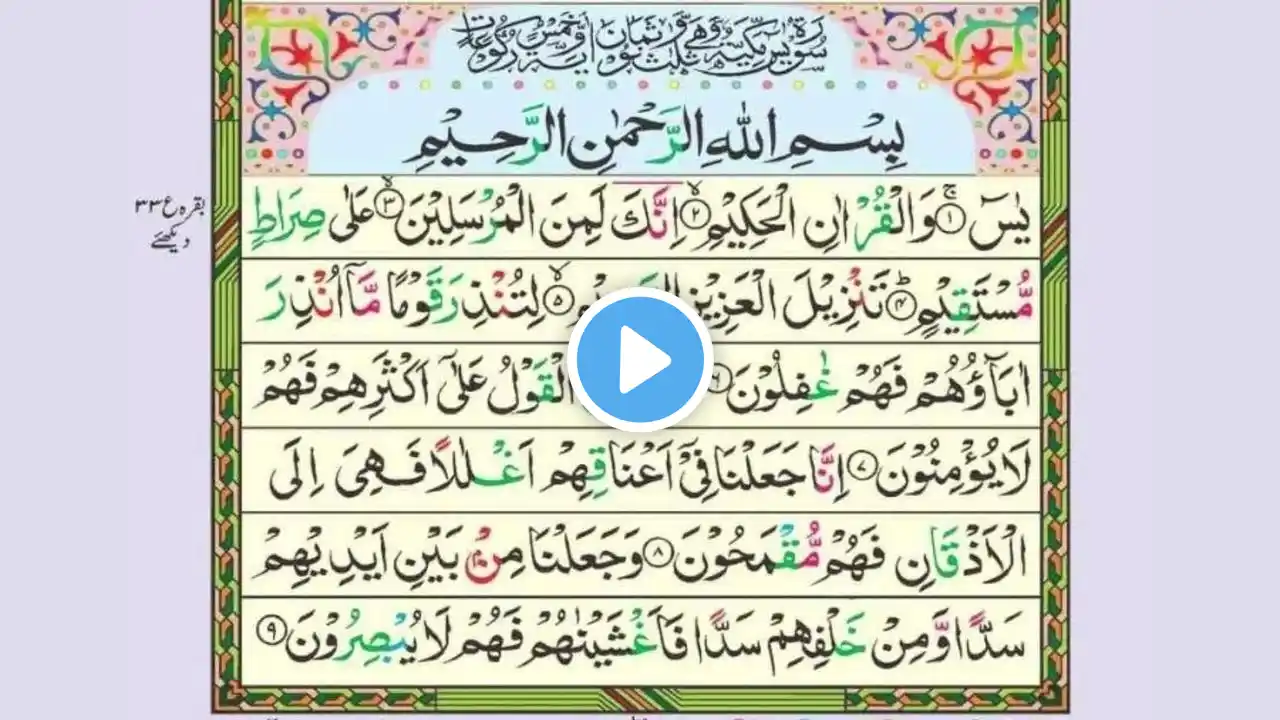 سُوْرَةُ يٰسٓ مَكِّيَّةٌ وَّهِيَ ثَلٰثٌ وَّثَمَانُوْنَ اٰيَةً وَّخَمْسُ رُكُوْعَاتٍ
بِسْمِ اللهِ الرَّحْمٰنِ الرَّحِيْمِ
يٰسٓ ۚ۝۱ وَالْقُرْاٰنِ الْحَكِيْمِ ۙ۝۲ اِنَّكَ لَمِنَ الْمُرْسَلِيْنَ ۙ۝۳ عَلٰى صِرَاطٍ
مُّسْتَقِيْمٍ ؕ۝۴ تَنْزِيْلَ الْعَزِيْزِ ۙ۝۵ لِتُنْذِرَ قَوْمًا مَّاۤ اُنْذِرَ
اٰبَآؤُهُمْ فَهُمْ غٰفِلُوْنَ ۝۶ الْقَوْلُ عَلٰۤى اَكْثَرِهِمْ فَهُمْ
لَا يُؤْمِنُوْنَ ۝۷ اِنَّا جَعَلْنَا فِيْۤ اَعْنَاقِهِمْ اَغْلٰلًا فَهِىَ اِلَى
الْاَذْقَانِ فَهُمْ مُّقْمَحُوْنَ ۝۸ وَجَعَلْنَا مِنْۢ بَيْنِ اَيْدِيْهِمْ
سَدًّا وَّمِنْ خَلْفِهِمْ سَدًّا فَاَغْشَيْنٰهُمْ فَهُمْ لَا يُبْصِرُوْنَ ۝۹
بقرہ ع ۳۳
دیکھئے